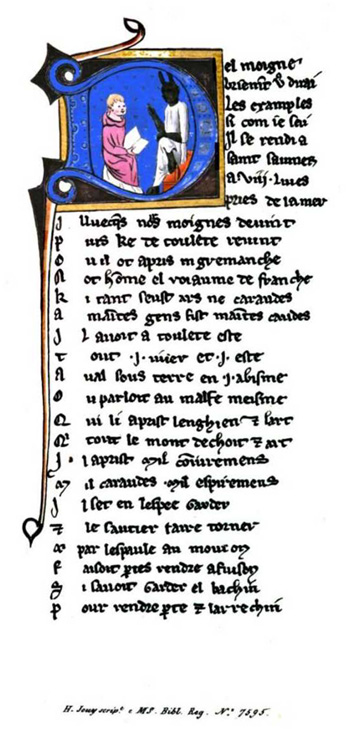 Del moigne
briement v͛ dirai
Les examples
si com ie sai
Il se rendi a
saint saumer
A .viij. liues
pres de la mer
J lluecq͛s noirs moignes deuint
P uis ke de toulete reuint
O u il ot apris nigremanche
N ot home el roiaume de franche
K i tant seust ars ne caraudes
A maītes gens fist maītes caudes
J l auoit a toulete este
T out .j. iuier et .j. este
A ual sous terre en .j. abisme
O u parloit au malfe meisme
Q ui li aprist lenghien ⁊ lart
Qͥ tout le mont dechoit ⁊ art
J l aprist mil cōiuremens
M il caraudes mil espiremens
J l set en lespee garder
⁊ le sautier faire torner
par lespaule au mouton
F aisoit ꝑtes rendre a fuison
J l sauoit garder el bachin
P our rendre ꝑte ⁊ larrechin
H. Jouy scrip.t e MS. Bibl. Reg. N.o 7595.